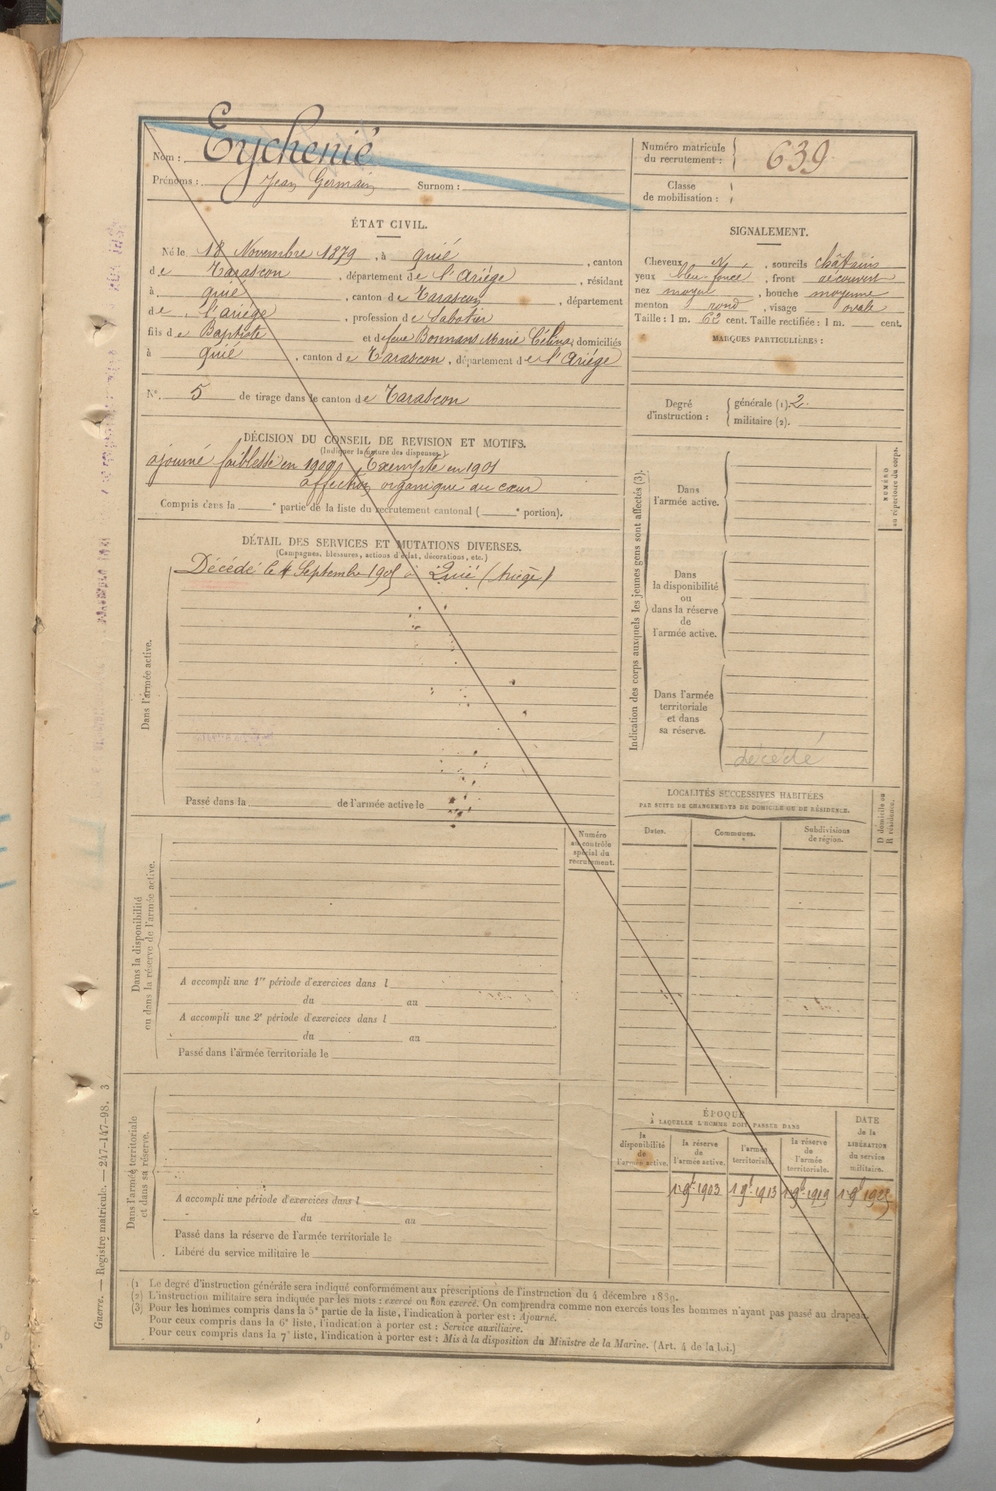 Nom : Eychenié
Prénoms : Jean Germain Surnom :
Numéro matricule
du recrutement : 639
Classe
de mobilisation :
ÉTAT CIVIL.
Né le 18 Novembre 1879, à Quié, canton
de Tarascon, département de l'Ariége, résidant
à Quié, canton de Tarascon, département
de l'ariége, profession de Sabotier
fils de Baptiste et de feue Bonnans Marie Célina, domiciliés
à Quié, canton de Tarascon, département de l'Ariége
N° 5 de tirage dans le canton de Tarascon
SIGNALEMENT.
Cheveux , sourcils châtains
yeux bleu foncé, front découvert
nez moyen, bouche moyenne
menton rond, visage ovale
Taille : 1 m. 62 cent. Taille rectifiée : 1 m. cent.
MARQUES PARTICULIÈRES :
Degré
d'instruction :
générale (1). 2.
militaire (2).
DÉCISION DU CONSEIL DE REVISION ET MOTIFS.
(Indiquer la nature des dispenses.)
ajourné faiblesse en 1900, Exempté en 1901
affection organique du cœur
Compris dans la ° partie de la liste du recrutement cantonal ( ° portion).
DÉTAIL DES SERVICES ET MUTATIONS DIVERSES.
(Campagnes, blessures, actions d'éclat, décorations, etc.)
Décédé le 4 Septembre à Quié (Ariège)
Dans l'armée active.
Passé dans la de l'armée active le
Indication des corps auxquels les jeunes gens sont affectés (3).
Dans
l'armée active.
Dans
la disponibilité
ou
dans la réserve
de
l'armée active.
Dans l'armée
territoriale
et dans
sa réserve.
décédé
NUMÉRO
au répertoire du corps.
LOCALITÉS SUCCESSIVES HABITÉES
PAR SUITE DE CHANGEMENTS DE DOMICILE OU DE RÉSIDENCE.
Dates.
Communes.
Subdivisions
de région.
D domicile ou
R résidence.
Numéro
au contrôle
spécial du
recrutement.
Dans la disponibilité
ou dans la réserve de l'armée active.
A accompli une 1re période d'exercices dans l
du au
A accompli une 2e période d'exercices dans l
du au
Passé dans l'armée territoriale le
Dans l'armée territoriale
et dans sa réserve.
A accompli une période d'exercices dans l
du au
Passé dans la réserve de l'armée territoriale le
Libéré du service militaire le
ÉPOQUE
À LAQUELLE L'HOMME DOIT PASSER DANS
la
disponibilité
de
l'armée active.
la réserve
de
l'armée active.
l'armée
territoriale.
la réserve
de
l'armée
territoriale.
DATE
de la
LIBÉRATION
du service
militaire.
1 9bre 1903 1 9bre 1913 1 9bre 1919 1 9bre
(1) Le degré d'instruction générale sera indiqué conformément aux prescriptions de l'instruction du 4 décembre 1889.
(2) L'instruction militaire sera indiquée par les mots : exercé ou non exercé. On comprendra comme non exercés tous les hommes n'ayant pas passé au drapeau.
(3) Pour les hommes compris dans la 5e partie de la liste, l'indication à porter est : Ajourné.
Pour ceux compris dans la 6e liste, l'indication à porter est : Service auxiliaire.
Pour ceux compris dans la 7e liste, l'indication à porter est : Mis à la disposition du Ministre de la Marine. (Art. 4 de la loi.)
Guerre. — Registre matricule. — 247-147-98. 3